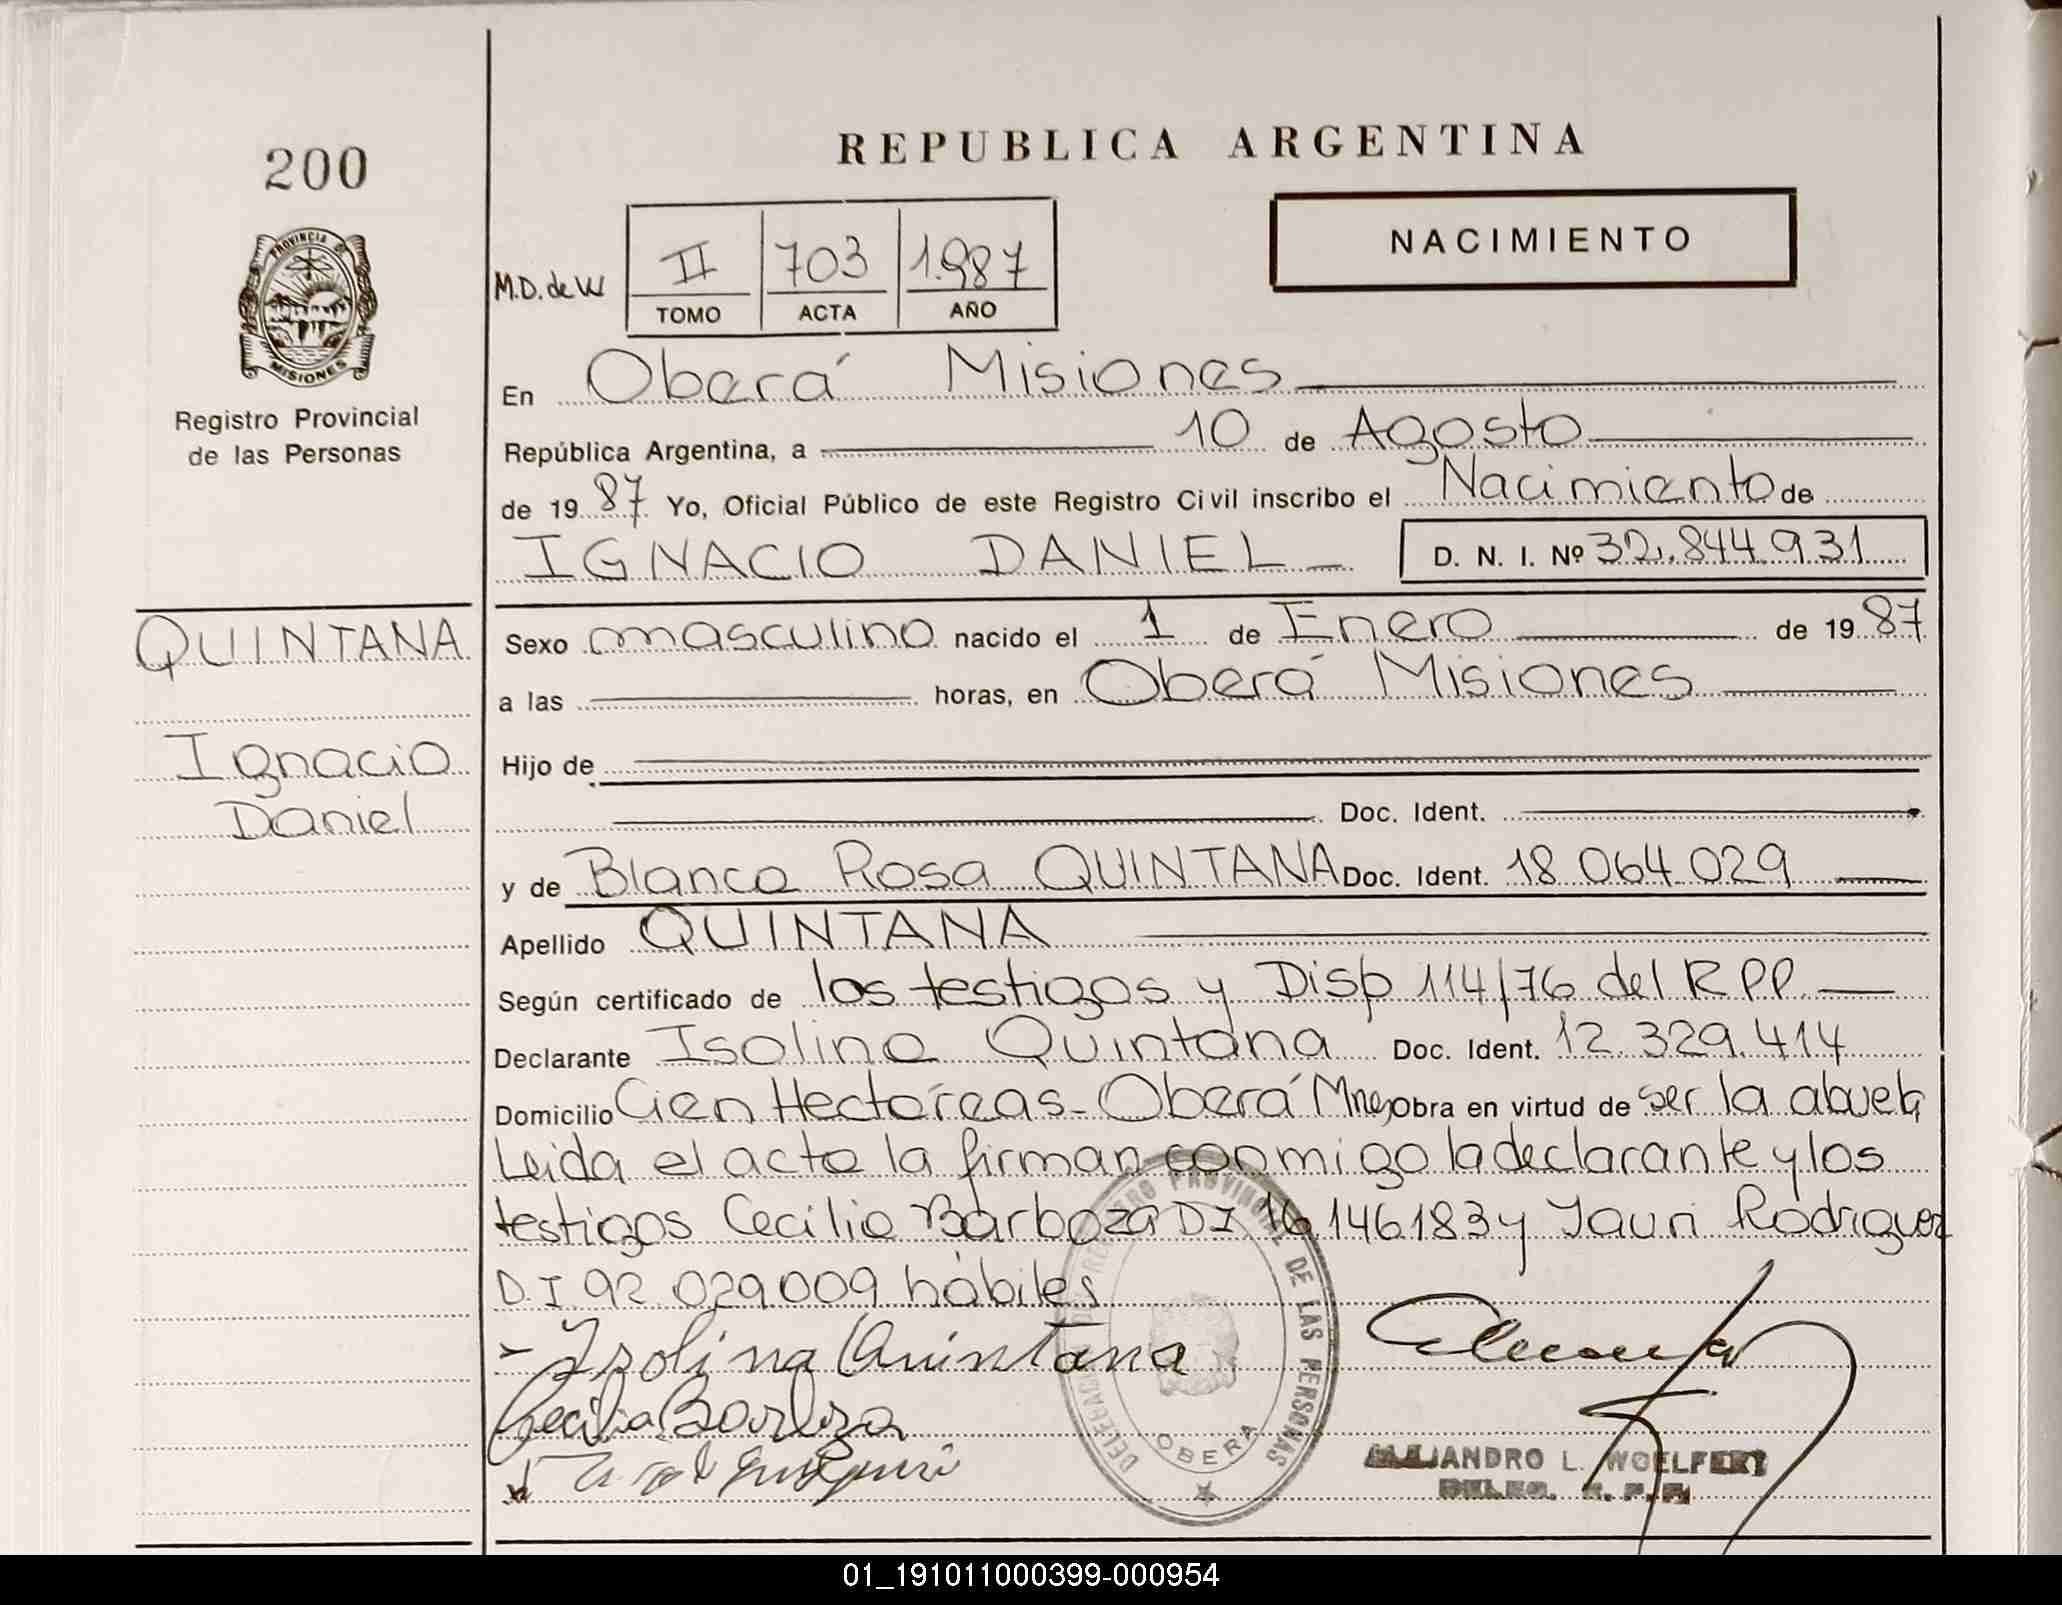 200
REPUBLICA ARGENTINA
NACIMIENTO
M.D. de W
II 703 1.987
TOMO ACTA AÑO
PROVINCIA DE
MISIONES
Registro Provincial
de las Personas
En Oberá Misiones
República Argentina, a 10 de Agosto
de 1987 Yo, Oficial Público de este Registro Civil inscribo el Nacimiento de
IGNACIO DANIEL D. N. I. Nº 32.844.931
QUINTANA
Ignacio
Daniel
Sexo masculino nacido el 1 de Enero de 1987
a las horas, en Oberá Misiones
Hijo de
Doc. Ident.
y de Blanca Rosa QUINTANA Doc. Ident. 18.064.029
Apellido QUINTANA
Según certificado de los testigos y Disp 114/76 del RPP.
Declarante Isolina Quintana Doc. Ident. 12.329.414
Domicilio Cien Hectáreas - Oberá Mnes obra en virtud de ser la abuela
Leida el acta la firman conmigo la declarante y los
testigos Cecilia Barboza DI 16.146.183 y Rodriguez
D.I 92.029.009 hábiles
Isolina Quintana
Cecilia Barboza
REGISTRO PROVINCIAL DE LAS PERSONAS
OBERA
ALEJANDRO L. WOELFERT
DELEG. R. P. P.
01_191011000399-000954